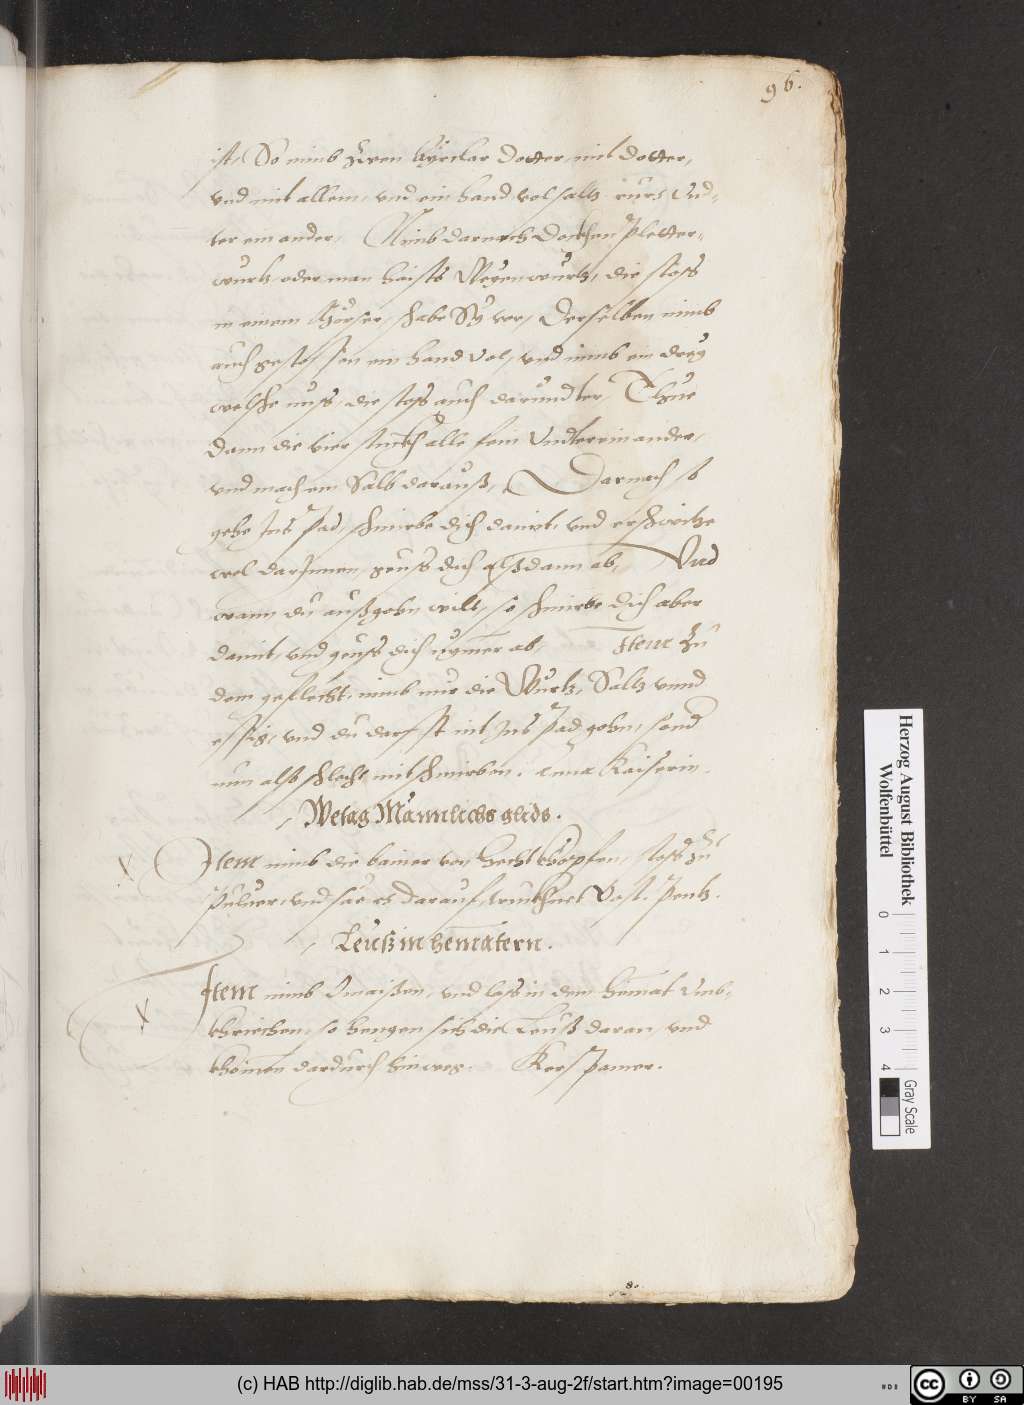 96.
ist, So nimb Zwen Ayrclar dotter, mit dotter,
vnd mit allem, vnd ein hand vol saltz rürs Vnd-
ter ein ander, Nimb darnach Docken Pletter-
wurtz oder man haists Wegenwurtz, die stoss
in einem Mörser, schabe Sy vor, Derselben nimb
auch gestossen ein hand vol, vnd nimb ein drey
welsche nuss, die stoss auch darundter, Thue
dann die vier stuckh alle fein Vndtereinander,
vnd mach ein Salb darauß, Darnach so
gehe Ins Pad, schmirbe dich damit, vnd erschwitze
wol darInnen, geuss dich alßdann ab, Vnd
wann du außgehn wilt, so schmirbe dich aber
damit, vnd geuss dich nymer ab, Item Zu
dem geflecht, nimb nur die Wurtz, Saltz vnnd
essig, vnd du darffst nit Ins Pad gehn, sond
nun also schlecht mit schmirben. Anna Kaiserin.
Wetag Mannlichs glids.
Item nimb die bainer von Hecht Köpfen, stoss zu
Puluer, vnd säe es darauf, truckhnet Vast. Pentz.
Leuß in hematern.
Item nimb Omaißen, vnd lass in dem Hemat Vmb-
khriechen, so hengen sich die Leuß daran, vnd
khomen dardurch hinweg. Pamer.
Herzog August Bibliothek
Wolfenbüttel
0 1 2 3 4
Gray Scale
(c) HAB http://diglib.hab.de/mss/31-3-aug-2f/start.htm?image=00195
cc BY SA